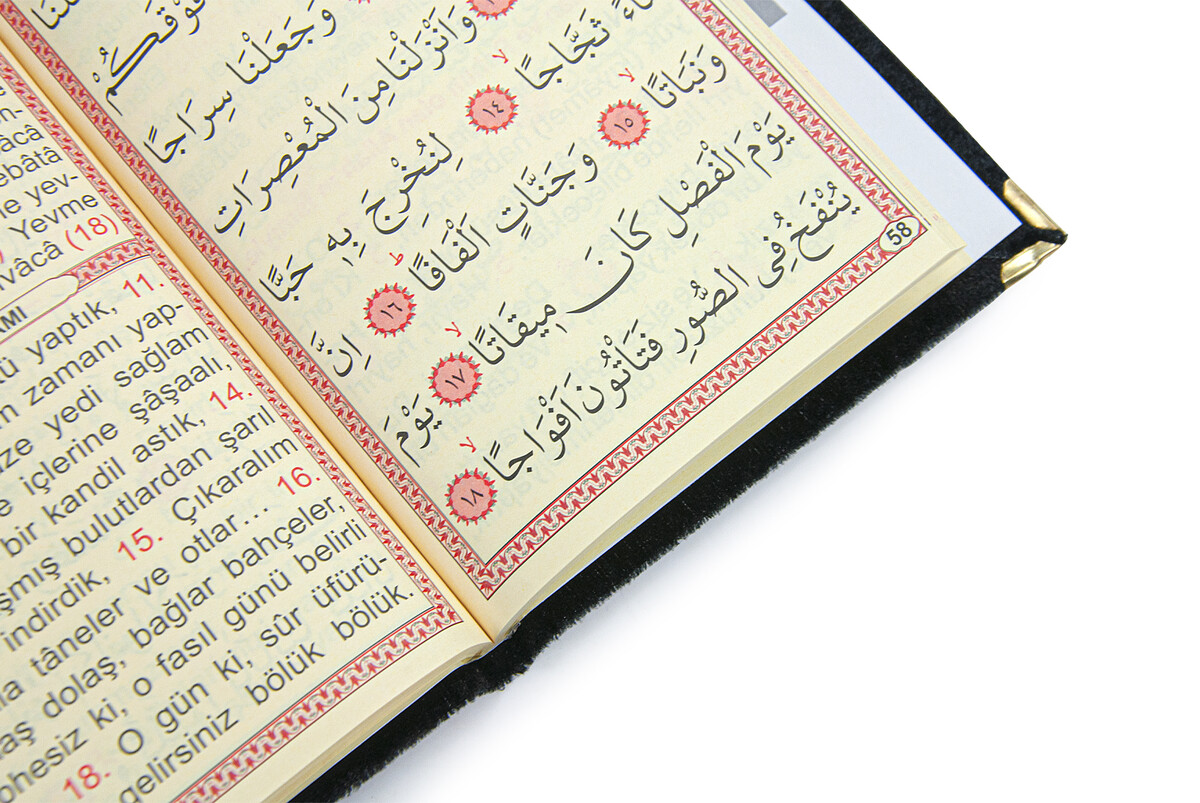 فَوْقَكُمْ
وَجَعَلْنَا سِرَاجًا
وَاَنْزَلْنَا مِنَ الْمُعْصِرَاتِ
ثَجَّاجًا ﴿١٤﴾ لِنُخْرِجَ بِهٖ حَبًّا
وَنَبَاتًا ﴿١٥﴾ وَجَنَّاتٍ اَلْفَافًا ﴿١٦﴾ اِنَّ
يَوْمَ الْفَصْلِ كَانَ مٖيقَاتًا ﴿١٧﴾ يَوْمَ
يُنْفَخُ فِى الصُّورِ فَتَاْتُونَ اَفْوَاجًا ﴿١٨﴾
58
vâcâ
ebâtâ
le yev-
Yevme
vâcâ (18)
AMI
tü yaptık, 11.
zamanı yap-
ze yedi sağlam
e içlerine şâşaalı,
bir kandil astık, 14.
şmış bulutlardan şarıl
indirdik, 15. Çıkaralım
la tâneler ve otlar... 16.
aş dolaş, bağlar bahçeler,
phesiz ki, o fasıl günü belirli
18. O gün ki, sûr üfürü-
gelirsiniz bölük bölük.